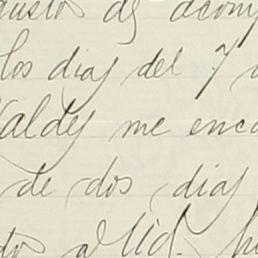 gustos de acomp
los dias del 7 
Valdes me enco
de dos dias
dos a Ud.